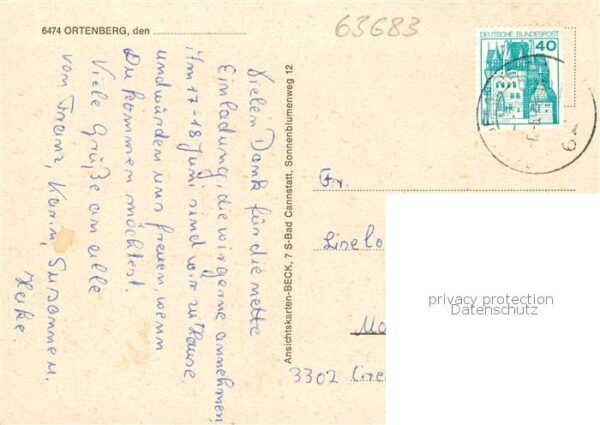 6474 ORTENBERG, den
63683
DEUTSCHE BUNDESPOST
40
Vielen Dank für die nette
Einladung, die wir gerne annehmen,
Am 17-18 Juni sind wir zu Hause.
und würden uns freuen, wenn
Du kommen möchtest.
Viele Grüße an alle
von Franz, Karin, Susanne u.
Heike.
Ansichtskarten-BECK, 7 S-Bad Cannstatt, Sonnenblumenweg 12
Fr.
3302
privacy protection
Datenschutz